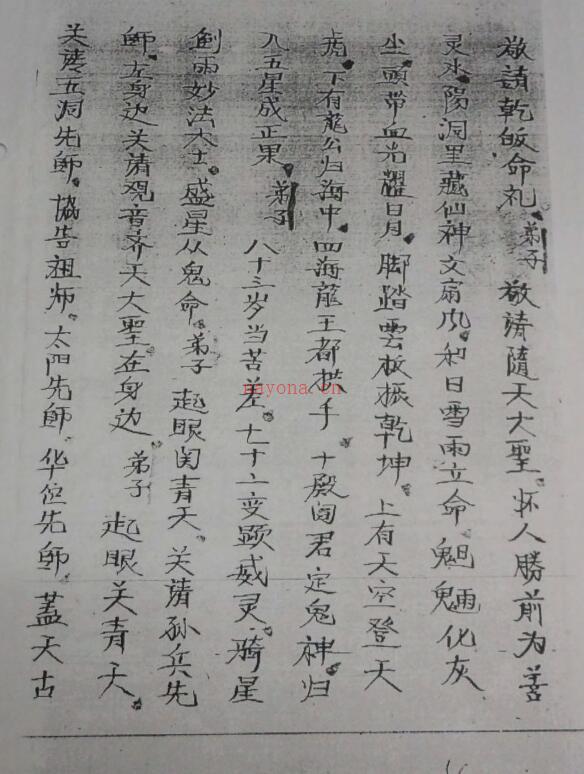 敬請乾皈命礼。弟子 敬请隨天大聖。怀人勝前为善
灵水。陽洞里藏仙神文扇风。和日雪雨立命。魍魎化灰
尘。頭带血光耀日月。脚踏雲板振乾坤。上有天空登天
下有龍公归海中。四海龍王都拱手。十殿阎君定鬼神。归
八五星成正果。弟子 八十三岁当苦差。七十二变顕威灵。骑星
創雨妙法大士。盛星从鬼命。弟子 起眼関青天。关请孙兵先
师。左身边关请观音齐天大聖在身边。弟子 起眼关青天。
关请五洞先师。協告祖师。太阳先师。华位先师。蓋天古
nayona.cn